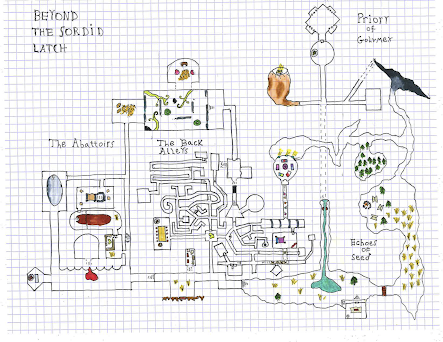 BEYOND
THE SORDID
LATCH
Priory
of
Golrmer
The Abattoirs
The Back
Alleys
Echoes
of
Seed